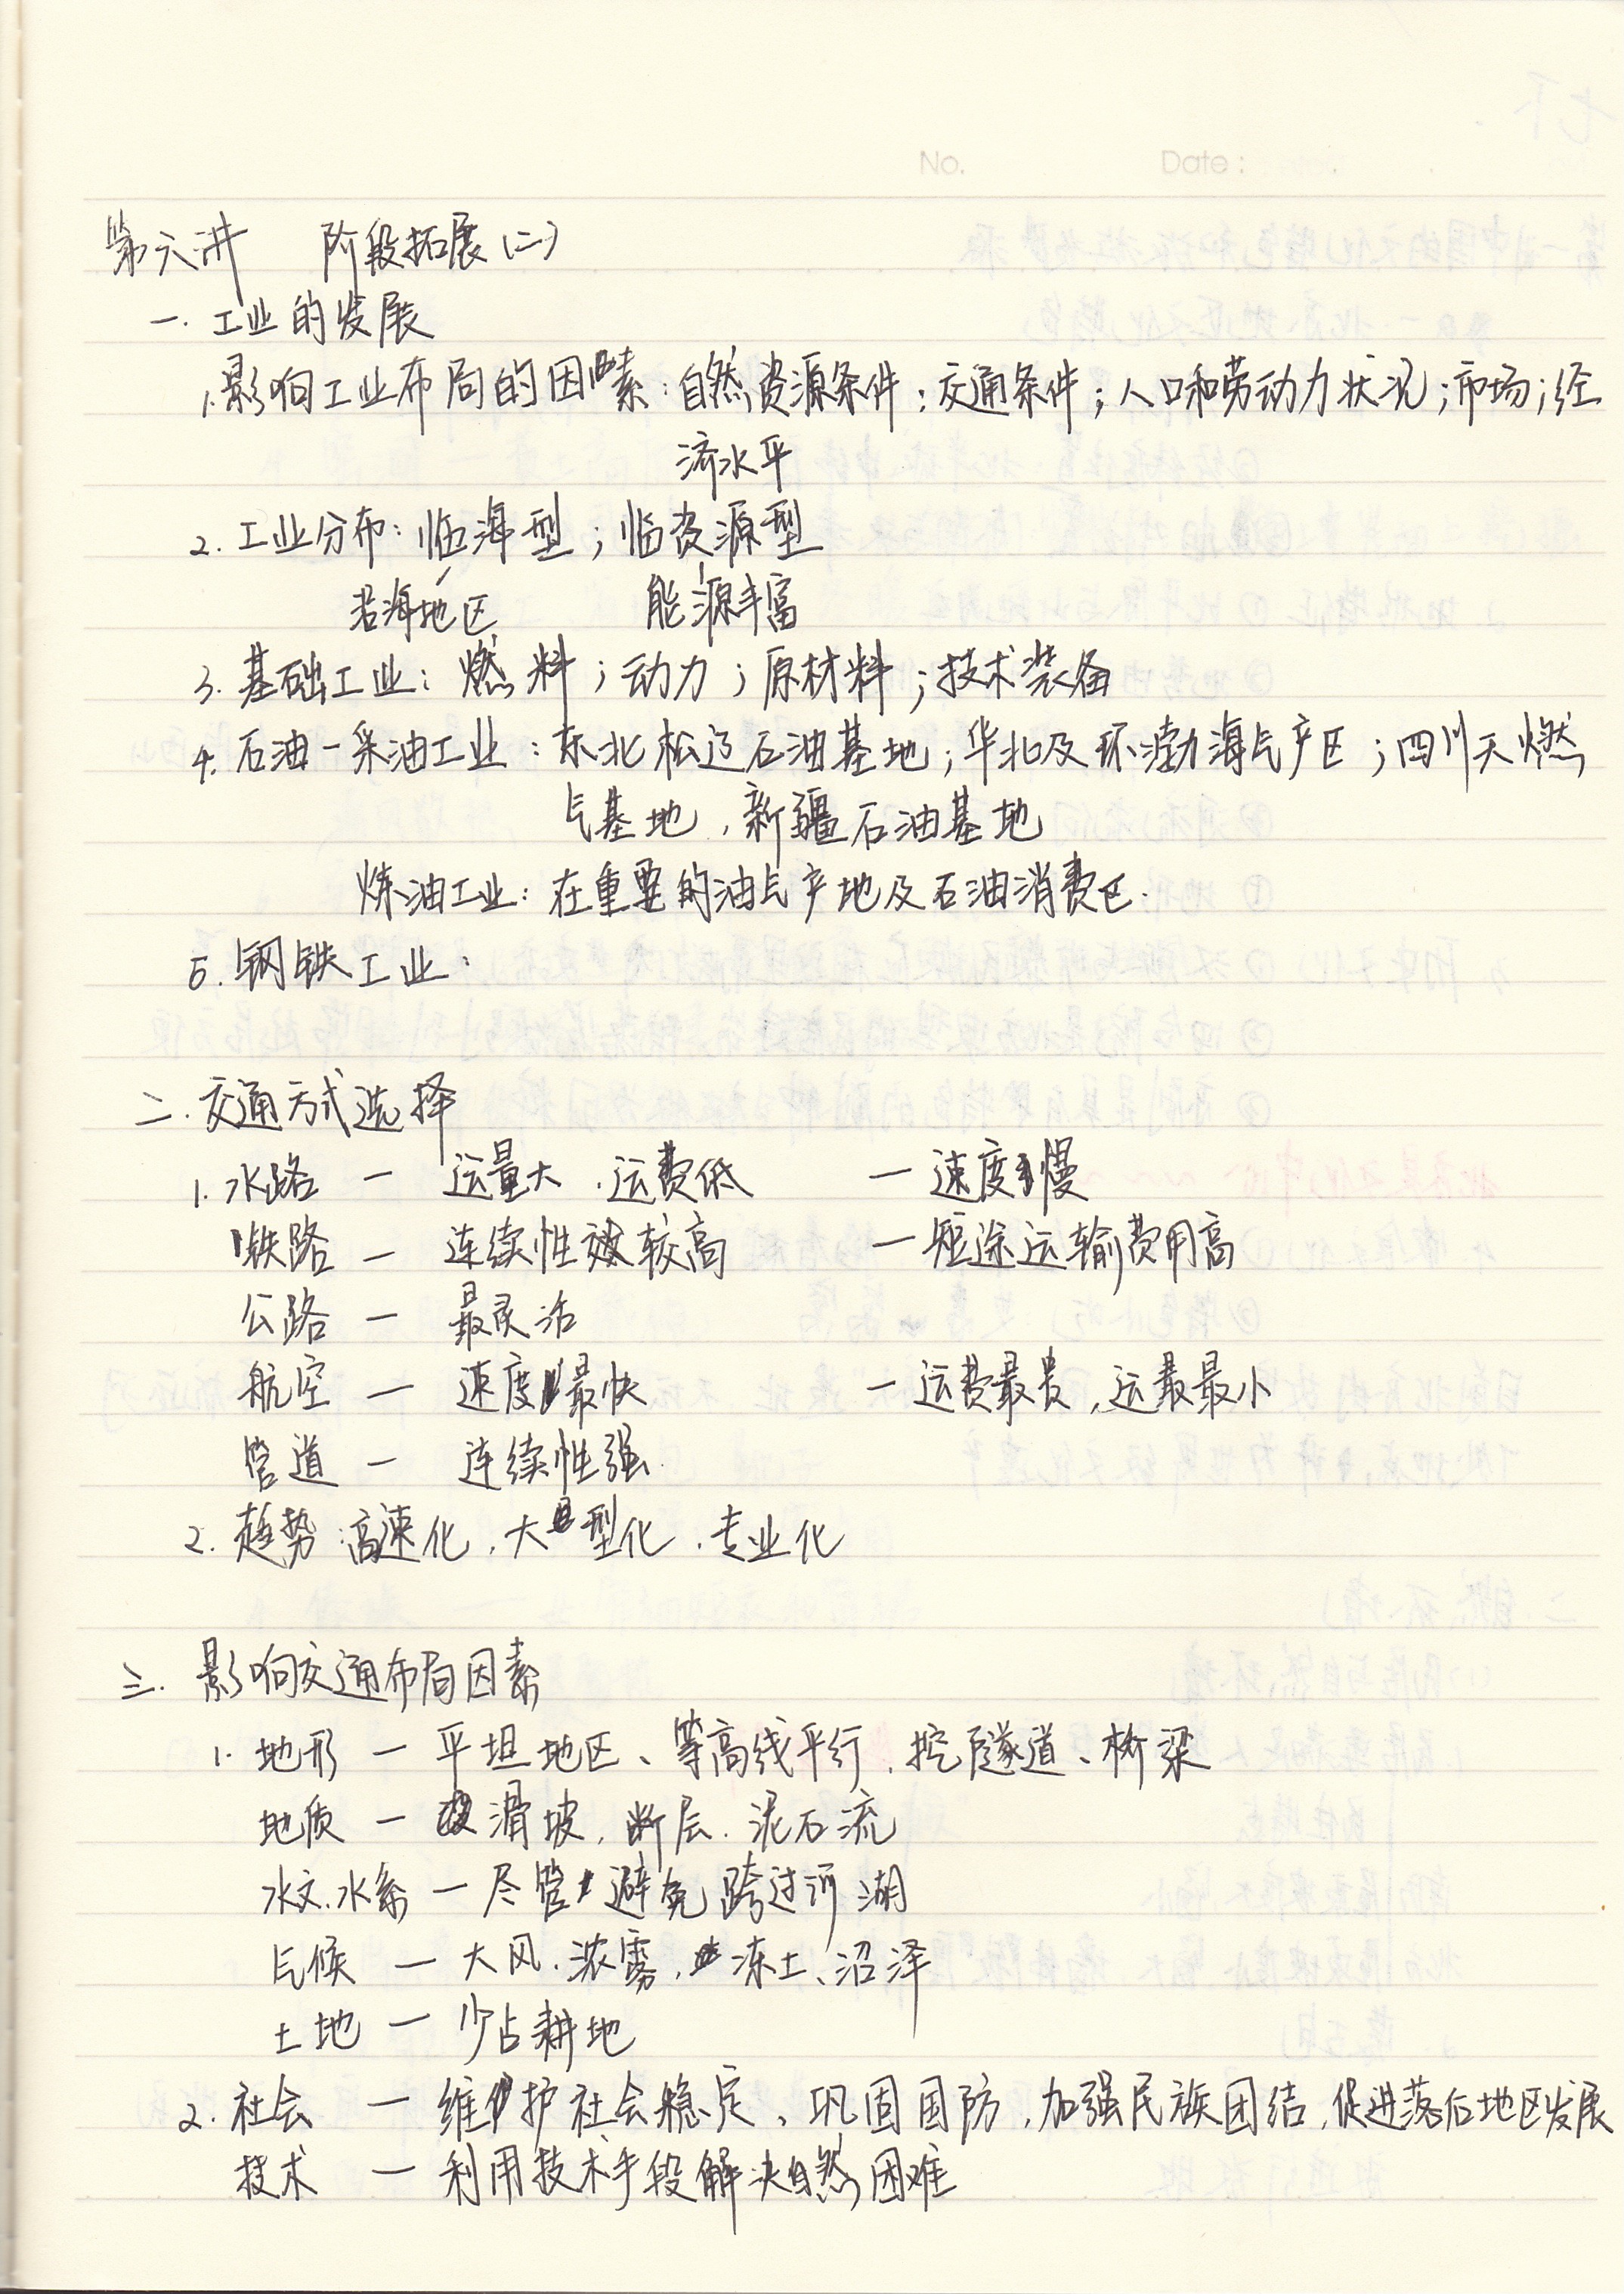 No. Date:
第六讲 阶段拓展(二)
一. 工业的发展
1.影响工业布局的因素:自然资源条件;交通条件;人口和劳动力状况;市场;经
济水平
2. 工业分布:临海型;临资源型
沿海地区 能源丰富
3. 基础工业:燃料;动力;原材料;技术装备
4. 石油-采油工业:东北松辽石油基地;华北及环渤海气产区;四川天燃
气基地,新疆石油基地
炼油工业:在重要的油气产地及石油消费区.
5. 钢铁工业:
二.交通方式选择
1. 水路 — 运量大.运费低 — 速度慢
铁路 — 连续性较高 — 短途运输费用高
公路 — 最灵活
航空 — 速度最快 — 运费最贵,运最最小
管道 — 连续性强.
2. 趋势:高速化.大型化.专业化
三. 影响交通布局因素
1. 地形 — 平坦地区、等高线平行.挖隧道、桥梁
地质 — 滑坡.断层.泥石流
水文.水系 — 尽管避免跨过河湖
气候 — 大风.浓雾.冻土、沼泽
土地 — 少占耕地
2. 社会 — 维护社会稳定、巩固国防,加强民族团结,促进落后地区发展
技术 — 利用技术手段解决自然困难